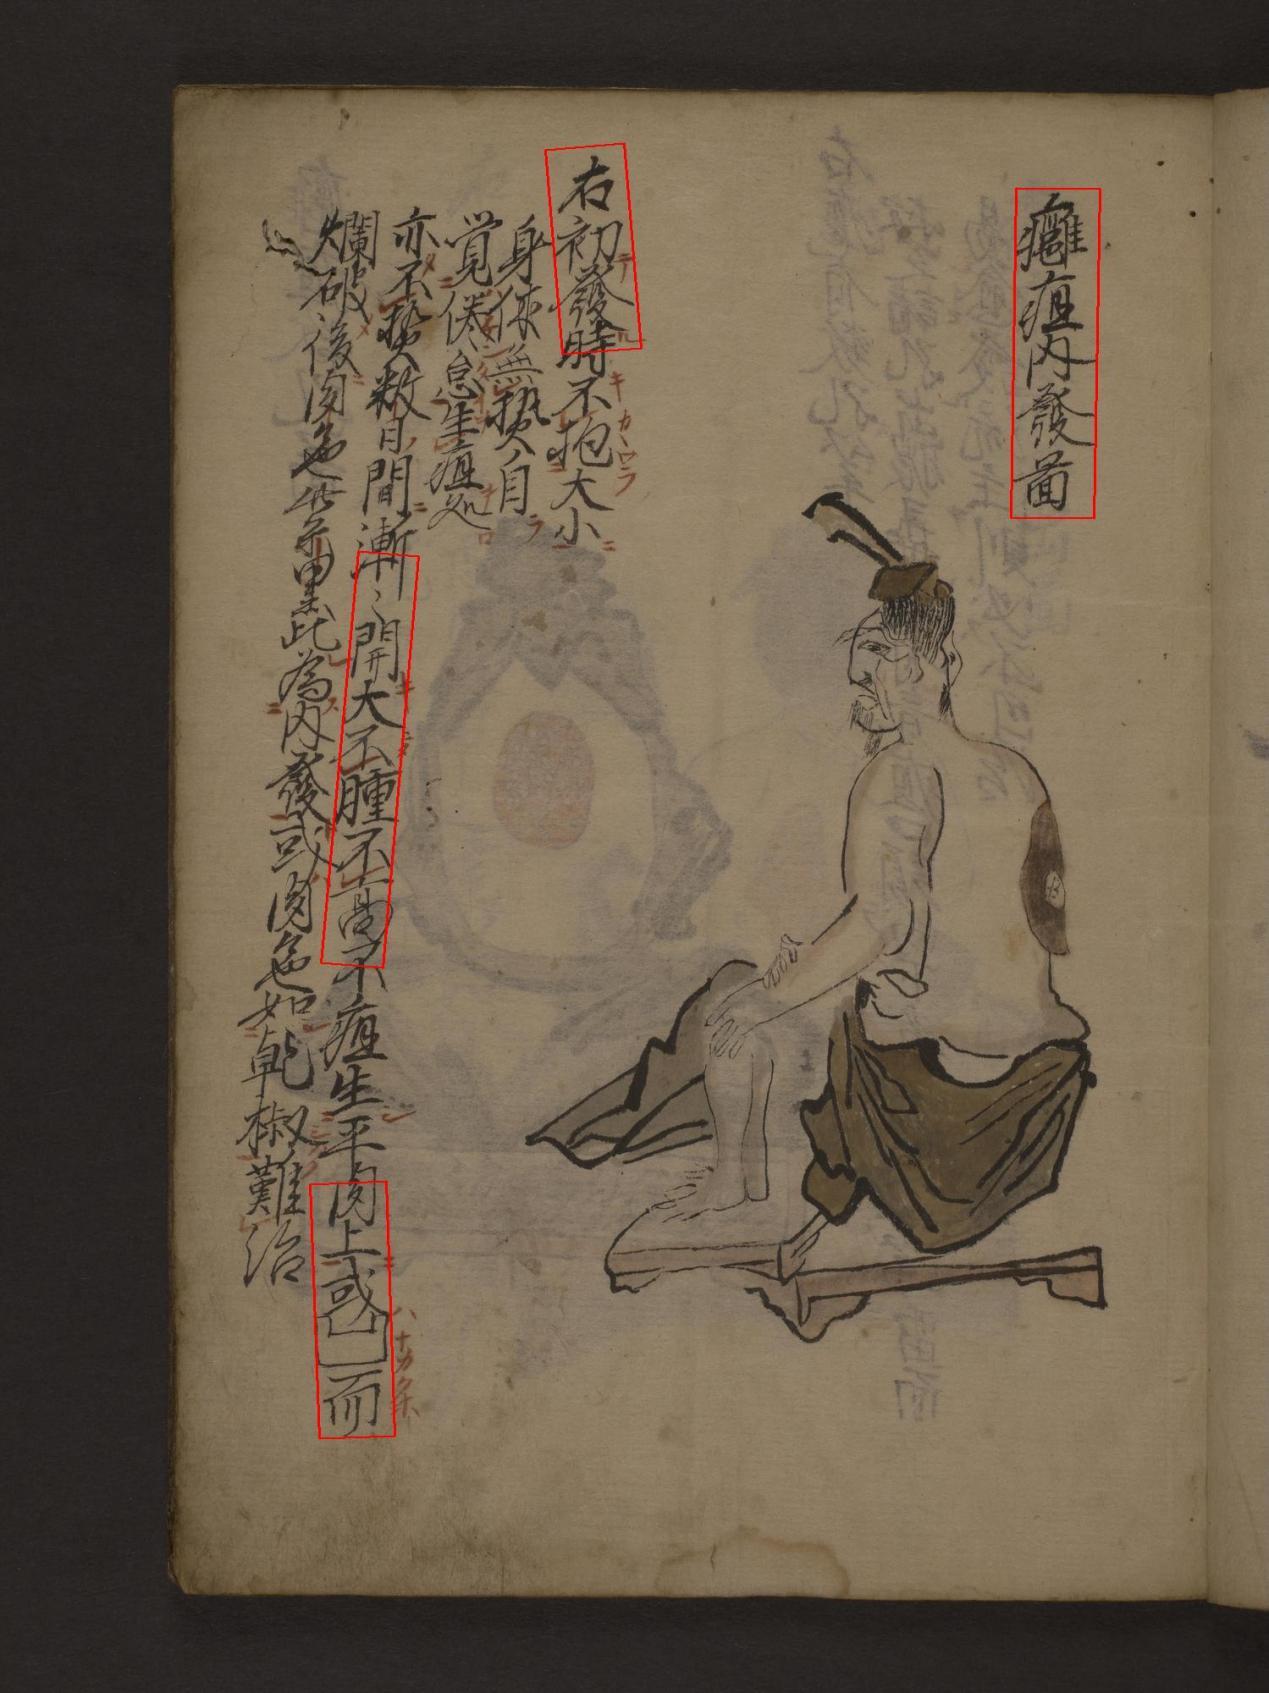 癰疽内發啚
右初發時不抱大小
身体無𤍠自
覚倦怠生疽処
亦不𤍠数日間漸〻開大不腫不高不疽生平肉上或凹而
爛破後肉色紫黒此為内發或肉色如乾椒難治